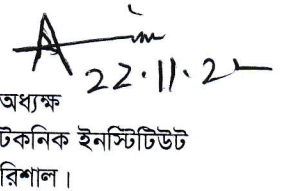 22.11.2
অধ্যক্ষ
টেকনিক ইনস্টিটিউট
রিশাল।